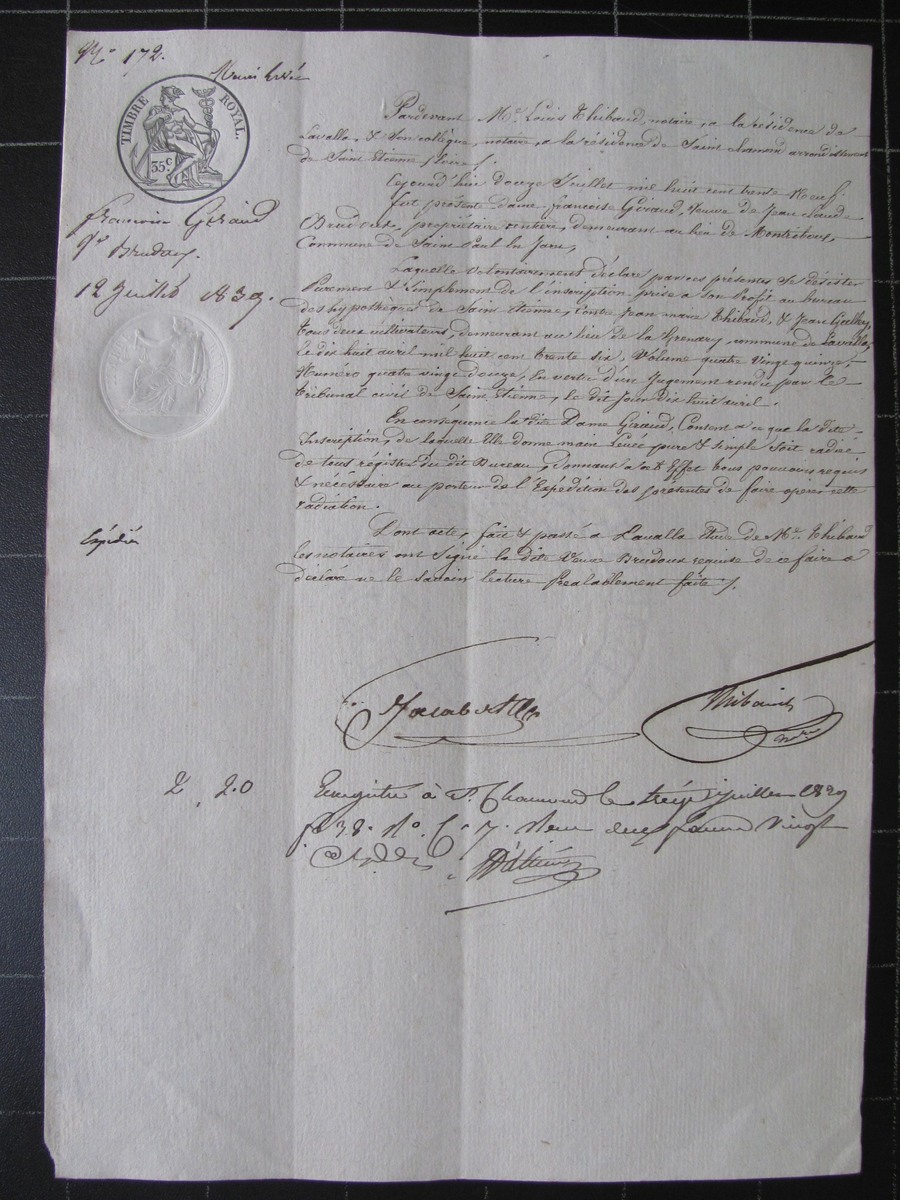 N° 172.
TIMBRE ROYAL.
35 c.
Pardevant Me. Louis Thibaud, notaire, a la résidence de
Lavalla, & Son collègue, notaire, a la résidence de Saint chamond arrondissement
de Saint Etienne (Loire).
Cejourd'hui douze Juillet mil huit cent trente Neuf
fut présente dame françoise Géraud, Veuve de Jean Claude
propriétaire rentière, demeurant au lieu de
Commune de Saint Paul En Jarez,
Laquelle volontairement déclare par ces présentes Se désister
Purement & Simplement de l'inscription prise a Son Profit au bureau
des hypothèques de Saint Etienne, Contre Jean marie Thibaud, & Jean
tous deux cultivateurs, demeurant au lieu de la commune de Lavalla,
le dix huit avril mil huit cent trente six, Volume quatre vingt quinze,
Numéro quatre vingt douze, En vertu d'un Jugement rendu par le
tribunal civil de Saint Etienne, le dit Jour dix huit avril.
En conséquence la dite Dame Géraud, Consent a ce que la dite
Inscription, de laquelle Elle donne main Levée pure & simple Soit radiée
de tous régistres du dit Bureau, donnant a cet Effet tous pouvoirs requis
& nécessaire au porteur de l'Expédition des présentes de faire opérer cette
radiation.
Dont acte, fait & passé a Lavalla Etude de Me. Thibaud
les notaires ont Signé la dite Veuve requise de ce faire a
déclaré ne le Savoir lecture Préalablement faite /.
Géraud
12 Juillet 1839.
Expédié
Thibaud
nre
2, 20
Enregistré à St. Chamond le treize juillet 1839
fo 38. Vo. C. 7. Reçu deux francs vingt